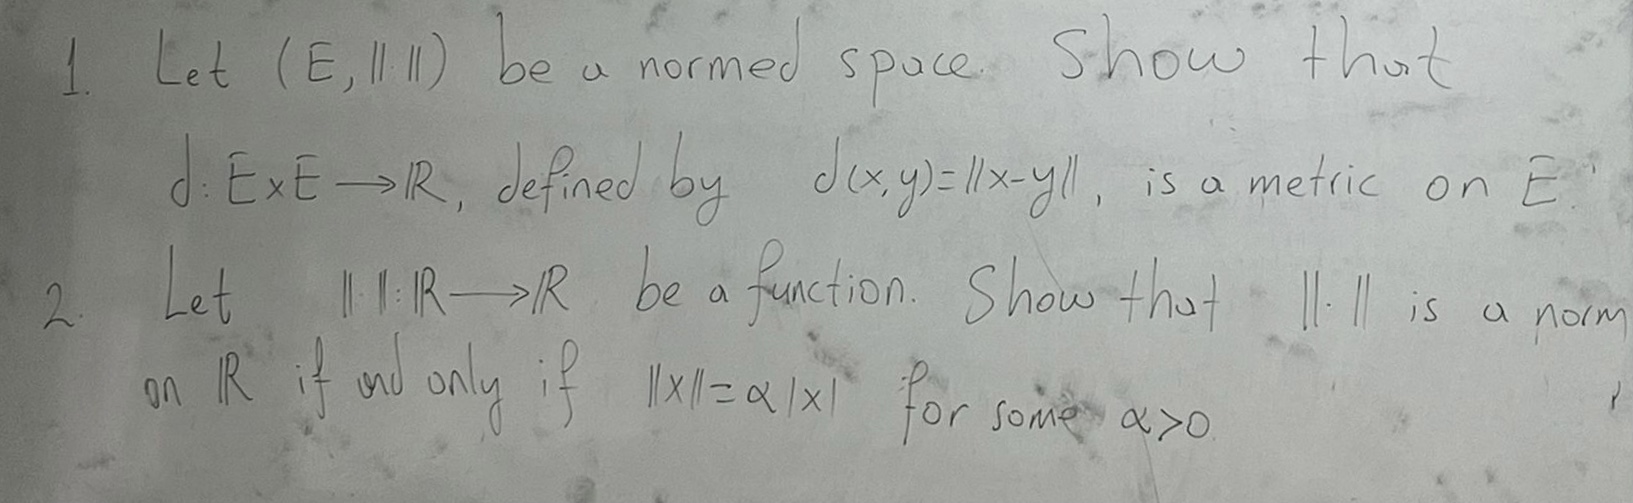 1. Let (E, ||.||) be a normed space. Show that
d: E×E → ℝ, defined by d(x,y)=||x-y||, is a metric on E.
2. Let ||.||: ℝ → ℝ be a function. Show that ||.|| is a norm
on ℝ if and only if ||x||=α|x| for some α>0.